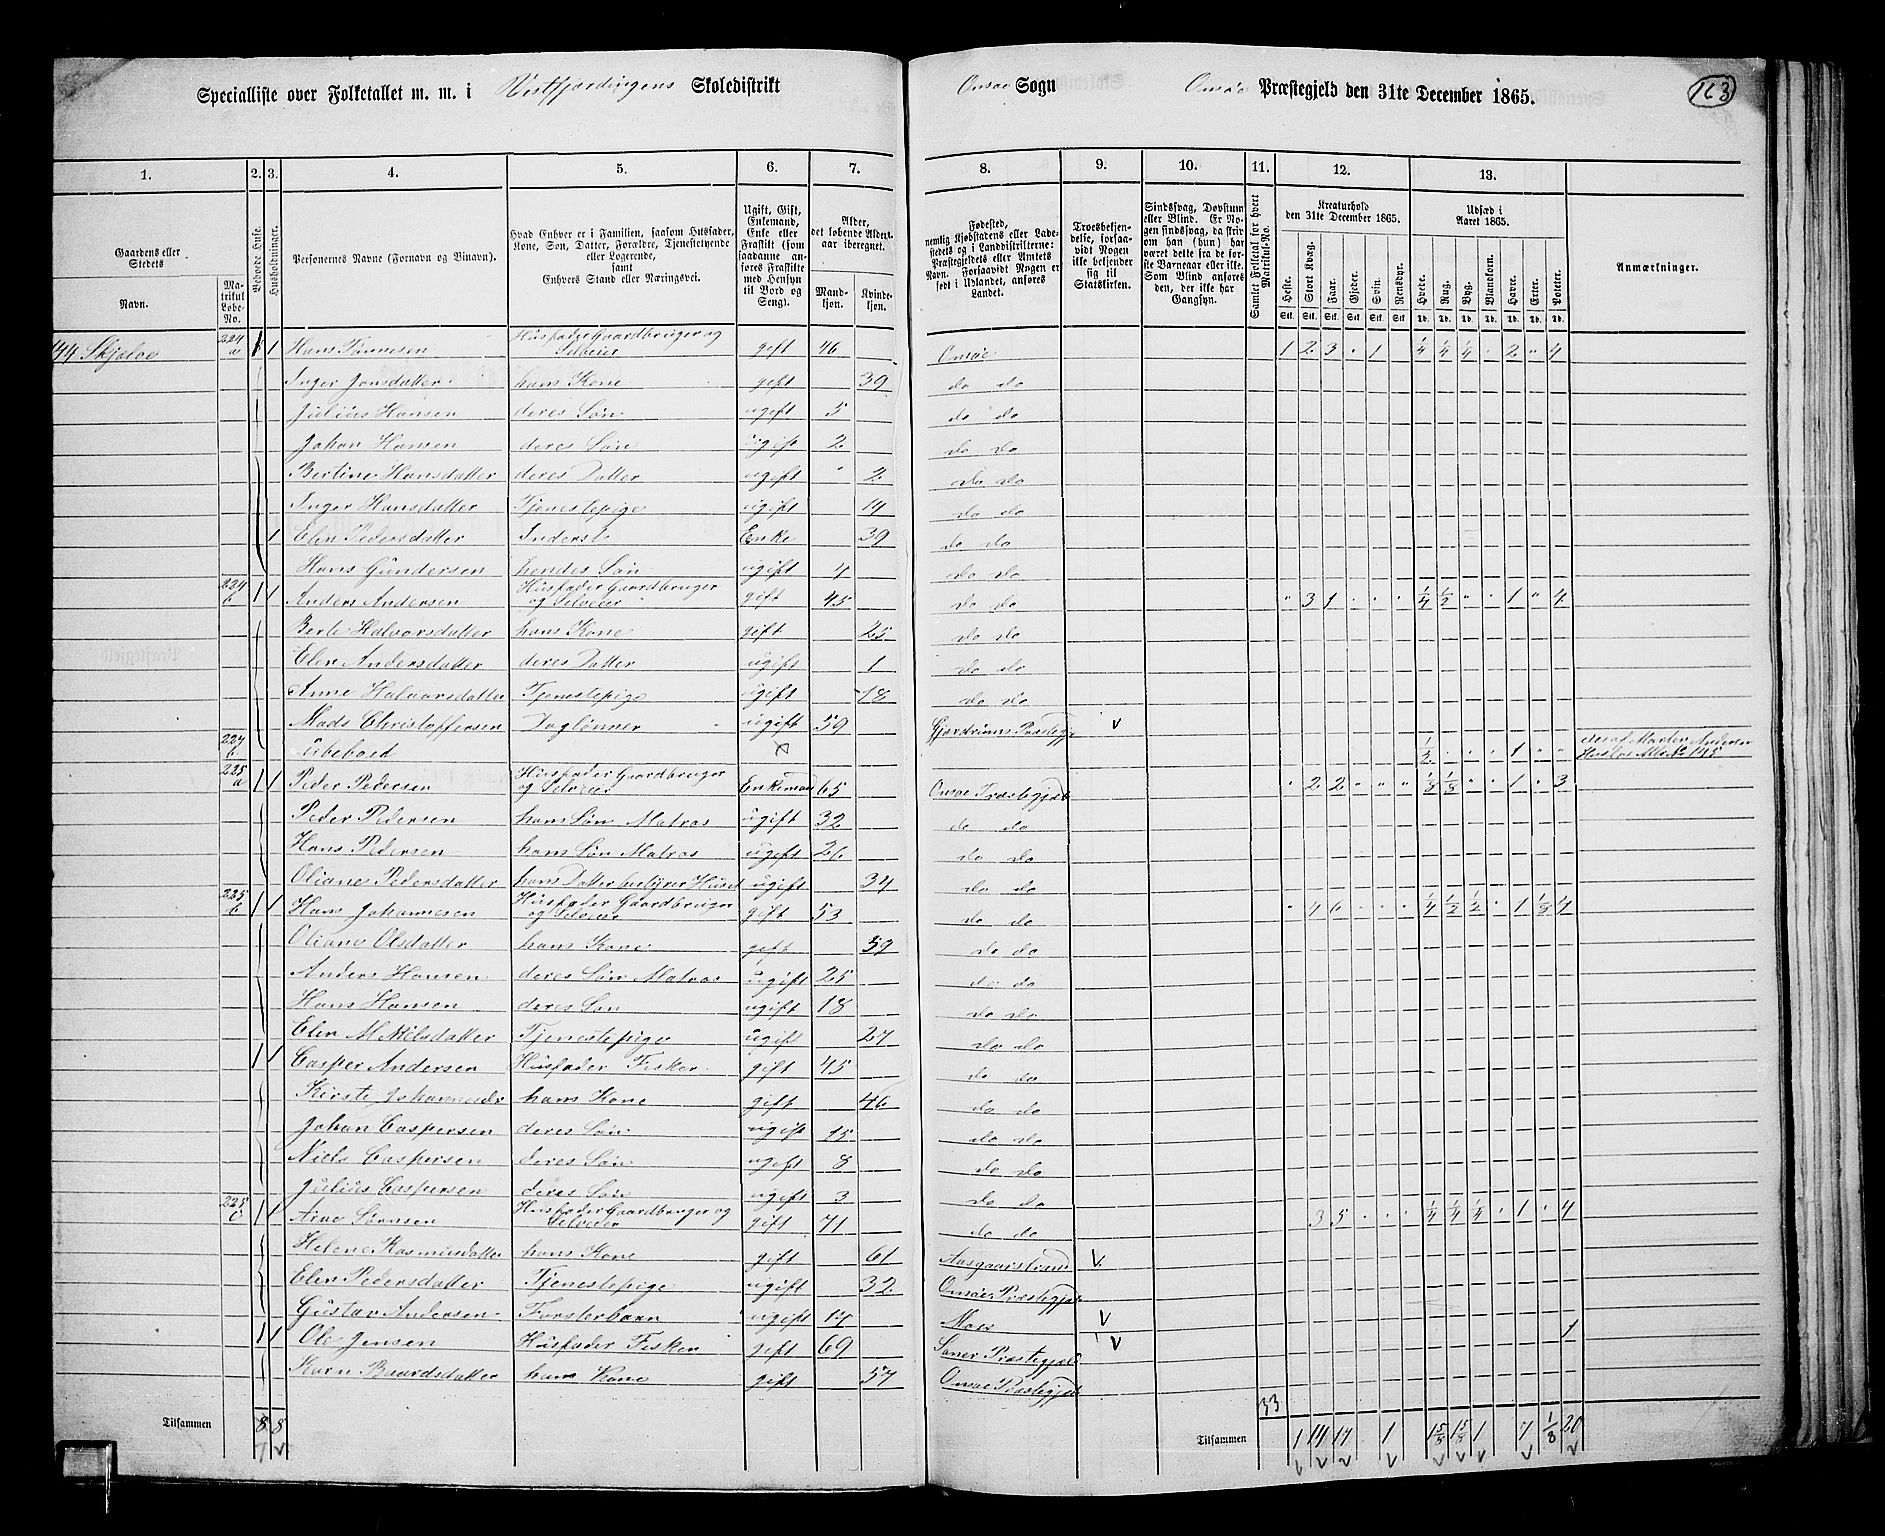 Specialliste over Folketallet m. m. i Vestfjerdingens Skoledistrikt Onsøe Sogn Onsøe Præstegjeld den 31te December 1865. 123
1. 2. 3. 4. 5. 6. 7. 8. 9. 10. 11. 12. 13.
Gaardens eller Stedets
Navn.
Matrikul Løbe-No.
Beboede Huse.
Husholdninger.
Personernes Navne (Fornavn og Binavn).
Hvad Enhver er i Familien, saasom Husfader, Kone, Søn, Datter, Forældre, Tjenestetyende eller Logerende, samt Enhvers Stand eller Næringsvei.
Ugift, Gift, Enkemand, Enke eller Fraskilt (saadanne anføres som Fraskilte med Hensyn til Bord og Seng).
Alder, det løbende Aldersaar iberegnet.
Mandkjøn. Kvindekjøn.
Fødested, nemlig Kjøbstadens eller Ladestedets og i Landdistrikterne: Præstegjeldets eller Amtets Navn. Forsaavidt Nogen er født i Udlandet, anføres Landet.
Troesbekjendelse, forsaavidt Nogen ikke bekjender sig til Statskirken.
Sindssvag, Døvstum eller Blind. Er Nogen sindssvag, da skriv om han (hun) har været dette fra de første Barneaar eller ikke. Som Blind anføres den, der ikke har Gangsyn.
Samlet Folketal for hvert Matrikul-No.
Kreaturhold den 31te December 1865.
Heste. Stort Kvæg. Faar. Gjeder. Svin. Rensdyr.
Udsæd i Aaret 1865.
Hvede. Rug. Byg. Blandkorn. Havre. Erter. Poteter.
Anmærkninger.
144 Skjaloe 224 a 1 1 Hans Tønnesen Husfader Gaardbruger og Selveier gift 46 Onsøe 1 2 3 " 1 1/4 1/4 1/4 " 2 " 4
Inger Jonsdatter hans Kone gift 39 do do
Julius Hansen deres Søn ugift 5 do do
Johan Hansen deres Søn ugift 2 do do
Bertine Hansdatter deres Datter ugift " 2 do do
Inger Hansdatter Tjenestepige ugift 14 do do
1 Elen Pedersdatter Inderst Enke 39 do do
Hans Gundersen hendes Søn ugift 4 do do
224 b 1 1 Anders Andersen Husfader Gaardbruger og Selveier gift 45 do do " 3 1 " " " 1/4 1/2 " " 1 " 4
Berte Halvorsdatter hans Kone gift 25 do do
Elen Andersdatter deres Datter ugift 1 do do
Anne Halvorsdatter Tjenestepige ugift 18 do do
Mads Christoffersen Daglønner ugift 59 Gjerdrums Præstegj v
224 b Ubeboed x 1/2 " " " 1 " " deraf Morten Andersen
225 a 1 1 Peder Pedersen Husfader Gaardbruger og Selveier Enkemand 65 Onsøe Præstegjeld " 2 2 " " " 1/8 1/8 " " 1 " 3
Peder Pedersen hans Søn Matros ugift 32 do do
Hans Pedersen hans Søn Matros ugift 26 do do
Oliane Pedersdatter hans Datter bestyrer Huset ugift 34 do do
225 b 1 1 Hans Johannesen Husfader Gaardbruger og Selveier gift 53 do do " 4 6 " " " 1/4 1/2 1/2 " 1 1/8 4
Oliane Olsdatter hans Kone gift 59 do do
Anders Hansen deres Søn Matros ugift 25 do do
Hans Hansen deres Søn ugift 18 do do
Elen M. Nilsdatter Tjenestepige ugift 27 do do
1 1 Casper Andersen Husfader Fisker gift 45 do do
Kirste Johannesdr hans Kone gift 46 do do
Johan Caspersen deres Søn ugift 15 do do
Niels Caspersen deres Søn ugift 8 do do
Julius Caspersen deres Søn ugift 3 do do
225 c 1 1 Arne Sørnsen Husfader Gaardbruger og Selveier gift 71 do do 3 5 " " " 1/4 1/4 1/4 " 1 " 4
Helene Rasmusdatter hans Kone gift 61 Aasgaarstrand v
Elen Pedersdatter Tjenestepige ugift 32 Onsøe Præstegjeld
Gustav Andersen Forsterbarn ugift 14 Moss v
1 1 Ole Jensen Husfader Fisker gift 69 Soner Præstegjeld v 1
Karn Baardsdatter hans Kone gift 57 Onsøe Præstegjeld
33
Tilsammen 8 8 Tilsammen 1 14 17 1 1 5/8 1 5/8 1 7 1/8 20
7 v v v v v v v v v v